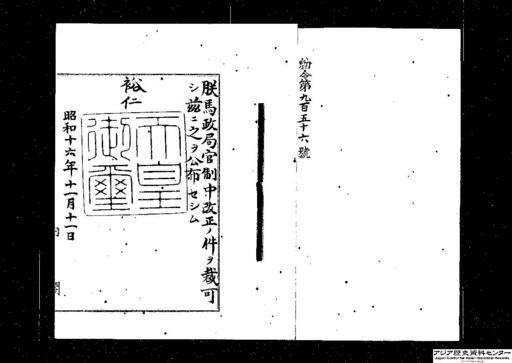 勅令第九百五十六號
朕馬政局官制中改正ノ件ヲ裁可
シ茲ニ之ヲ公布セシム
裕仁
天皇
御璽
昭和十六年十一月十一日
アジア歴史資料センター
Japan Center for Asian Historical Records